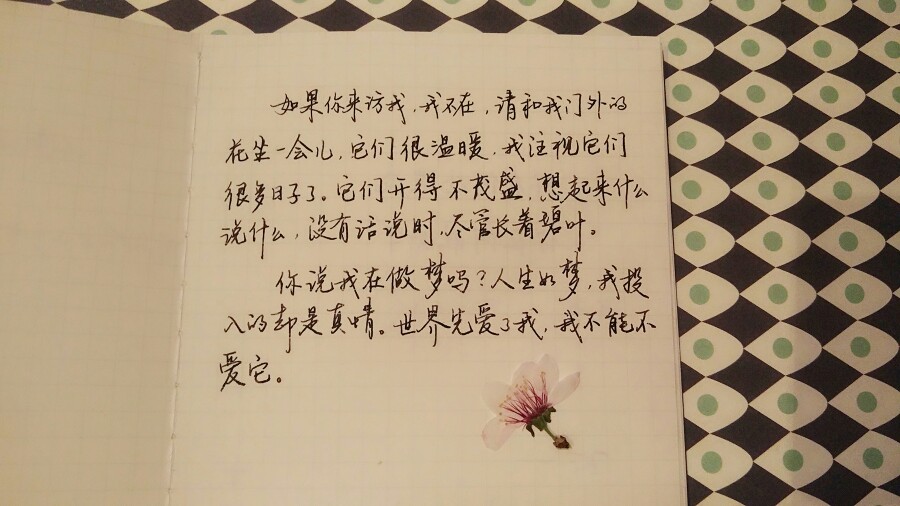 如果你来访我,我不在,请和我门外的
花坐一会儿,它们很温暖,我注视它们
很多日子了。它们开得不茂盛,想起来什么
说什么,没有话说时,尽管长着碧叶。
你说我在做梦吗?人生如梦,我投
入的却是真情。世界先爱了我,我不能不
爱它。